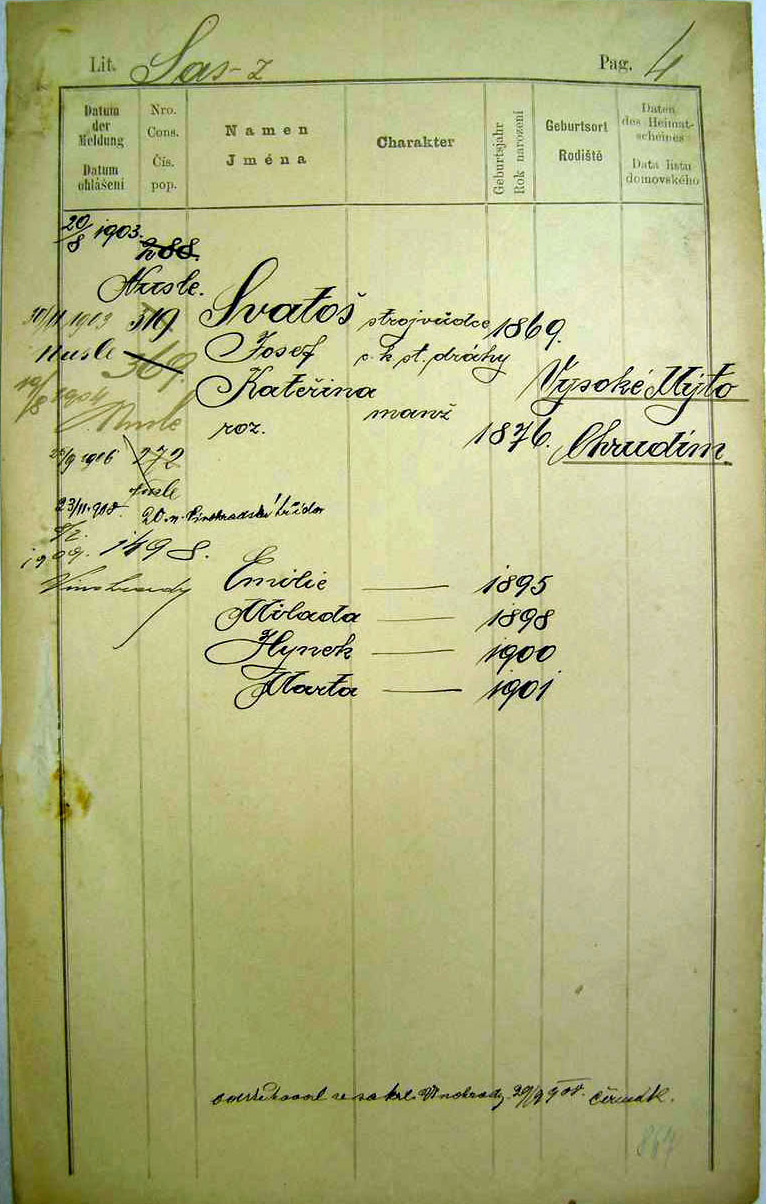 Lit. Sas-z Pag. 4
Datum der Meldung
Datum ohlášení
Nro. Cons.
Čís. pop.
Namen
Jména
Charakter
Geburtsjahr
Rok narození
Geburtsort
Rodiště
Daten des Heimatscheines
Data listu domovského
20/8 1903. 288.
Nusle.
30/11 1903 319 Svatoš strojvůdce 1869.
Nusle 369. Josef c. k. st. dráhy Vysoké Mýto
19/8 1904 Kateřina
Nusle manž
roz. 1876. Chrudim.
1906 272
Nusle
23/11 908. 20. n. Vinohradská třída
1909. 149 8.
Vinohrady
Emilie — 1895
Milada — 1898
Hynek — 1900
Marta — 1901
Vinohrady 29/9 908.
864